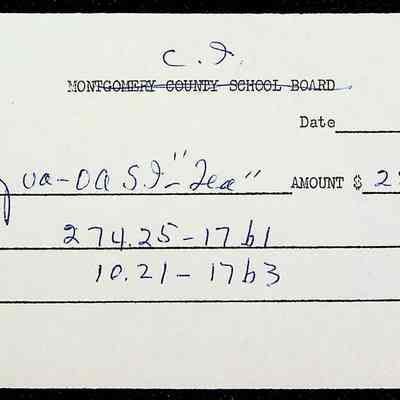 C. I.
MONTGOMERY COUNTY SCHOOL BOARD
Date
Va-DA S.I- "Tea" AMOUNT $ 2
274.25-17b1
10.21-17b3